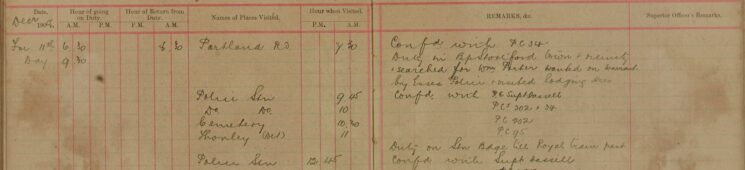 Date. Hour of going on Duty. Hour of Return from Duty. Names of Places Visited. Hour when Visited. REMARKS, &c. Superior Officer's Remarks.
Decr 190
A.M. P.M. A.M. P.M. P.M. A.M.
Fri 11th 6 30 8 30 Portland Rd 7 30 Conf'd with PC 34
Day 9 30 Duty in Bp Stortford Town & vicinity
& searched for Wm Porter wanted on warrant
by Essex Police & visited lodging
Police Stn 9 45 Conf'd with PC Supt Sassell
Do Do 10 PCs 202 & 34
Cemetery 10,30 PC 202
Thorley 11 PC 95
Duty on Stn Bdge till Royal Train past
Police Stn 12 45 Conf'd with Supt Sassell